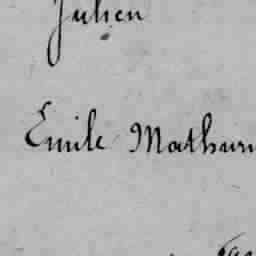 Julien
Emile Mathurin